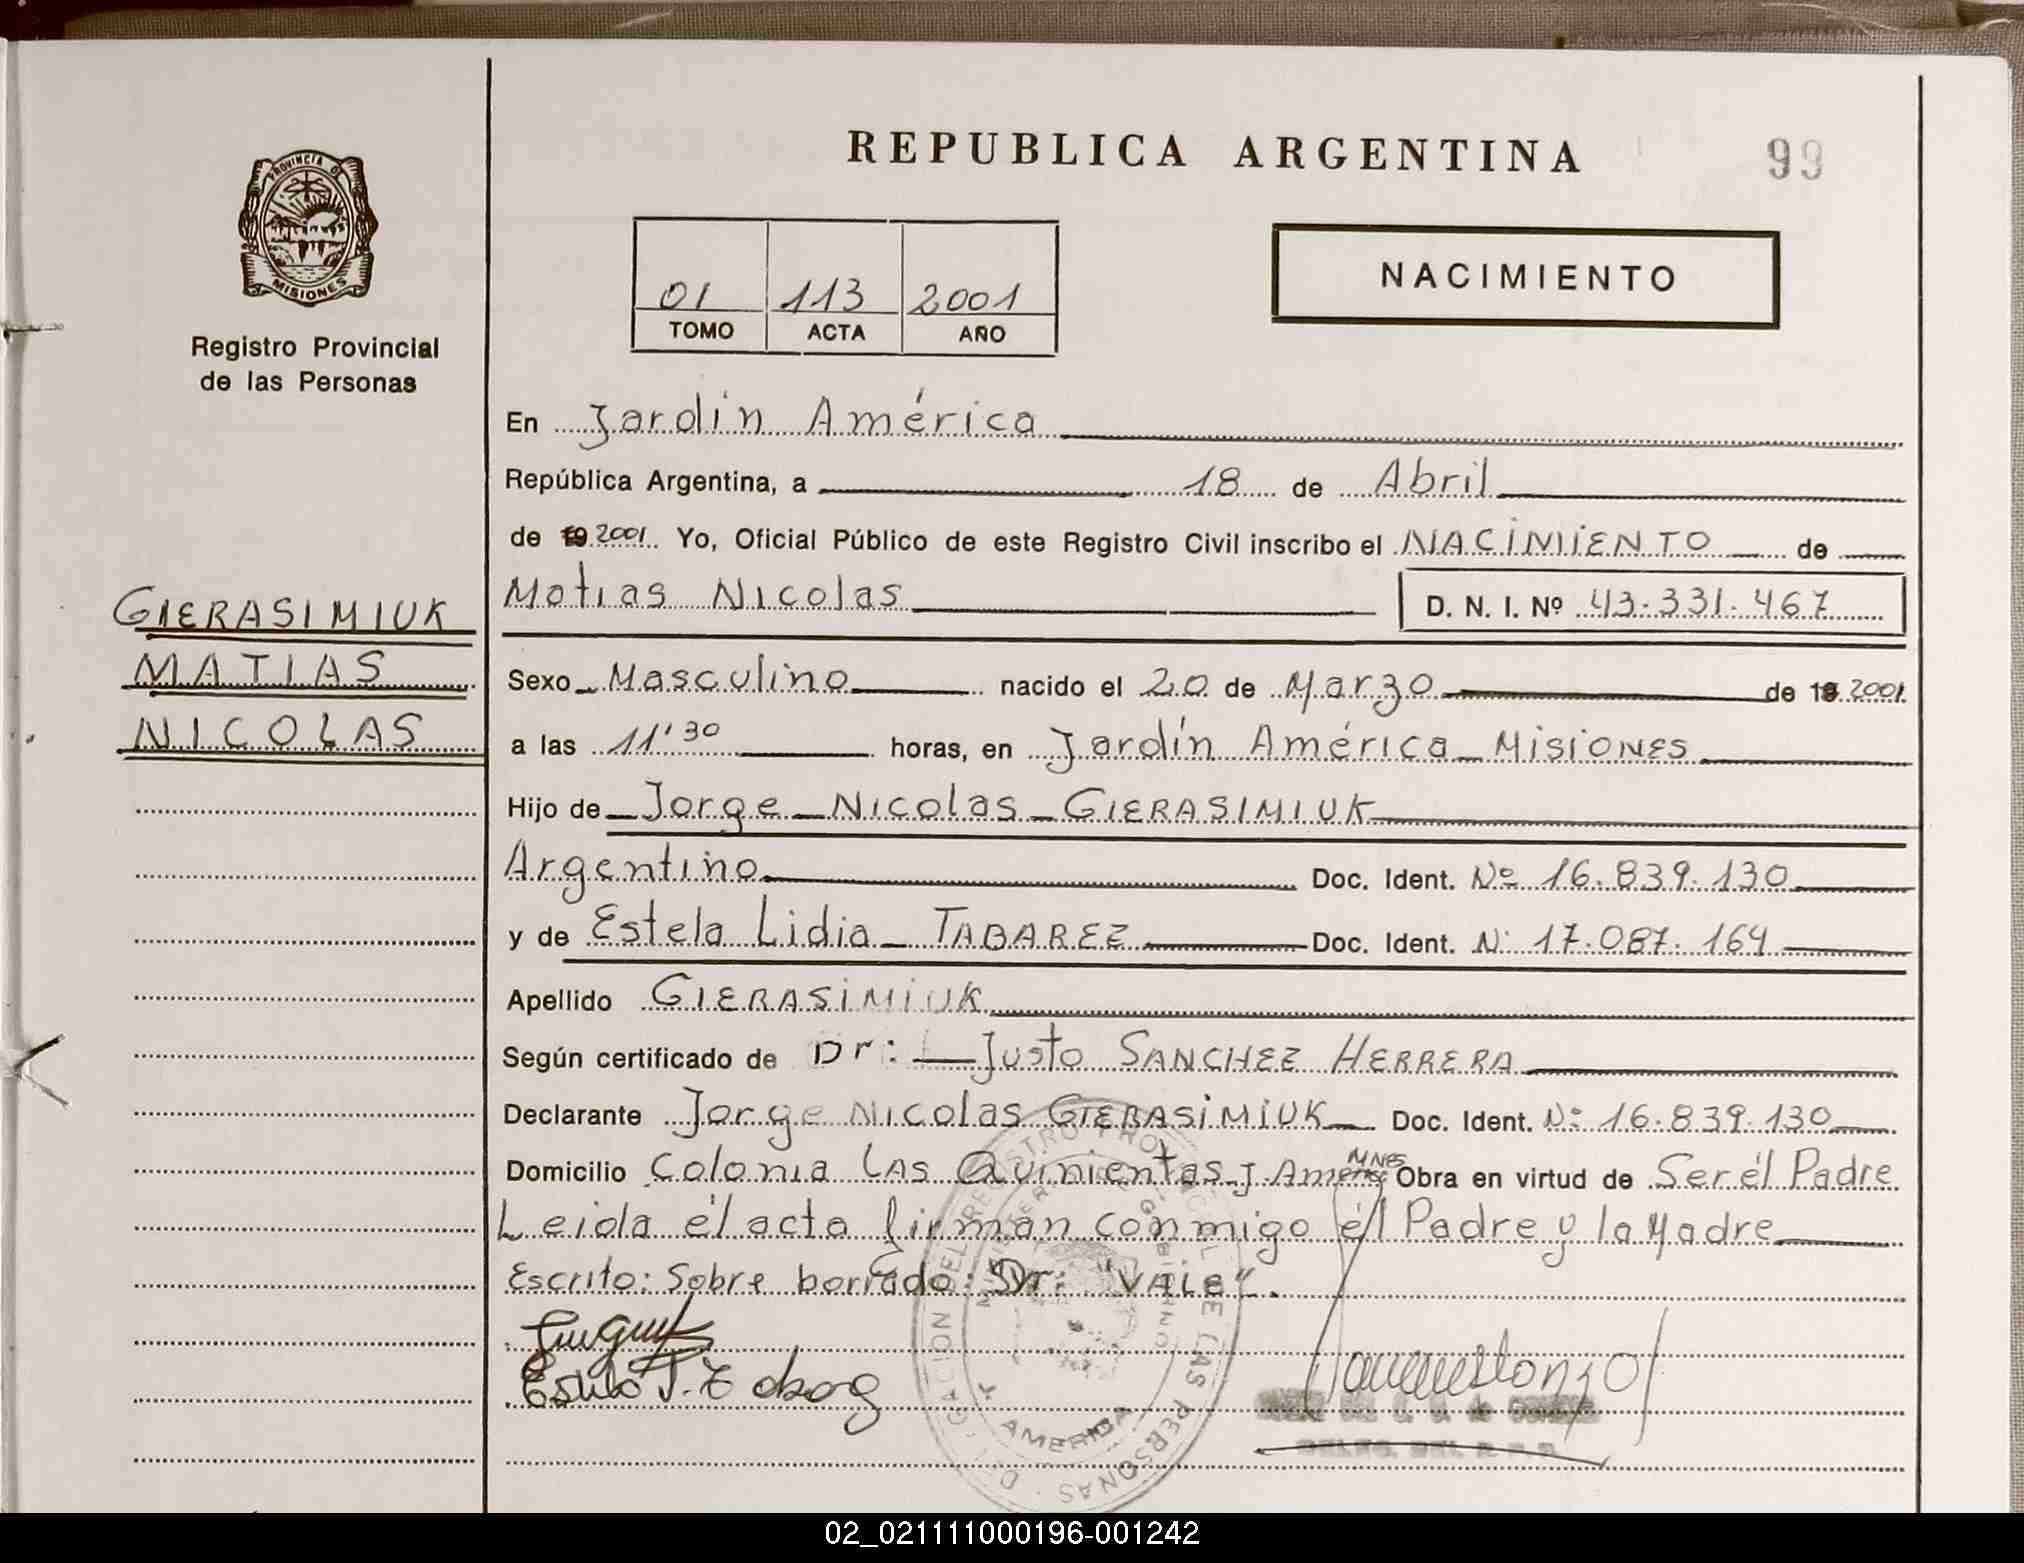 REPUBLICA ARGENTINA
99
PROVINCIA DE
MISIONES
Registro Provincial
de las Personas
01 113 2001
TOMO ACTA AÑO
NACIMIENTO
En Jardín América
República Argentina, a 18 de Abril
de 19 2001. Yo, Oficial Público de este Registro Civil inscribo el NACIMIENTO de
GIERASIMIUK
MATIAS
NICOLAS
Matias Nicolas D. N. I. Nº 43.331.467
Sexo Masculino nacido el 20 de Marzo de 19 2001.
a las 11'30 horas, en Jardín América Misiones
Hijo de Jorge Nicolas GIERASIMIUK
Argentino Doc. Ident. Nº 16.839.130
y de Estela Lidia TABAREZ Doc. Ident. Nº 17.087.164
Apellido GIERASIMIUK
Según certificado de Dr: Justo SANCHEZ HERRERA
Declarante Jorge Nicolas GIERASIMIUK Doc. Ident. Nº 16.839.130
Domicilio Colonia Las Quinientas J. América MNES Obra en virtud de Ser él Padre
Leida él acta firman conmigo él Padre y la Madre
Escrito: Sobre borrado: Dr: "VALE".
AMERICA
02_021111000196-001242